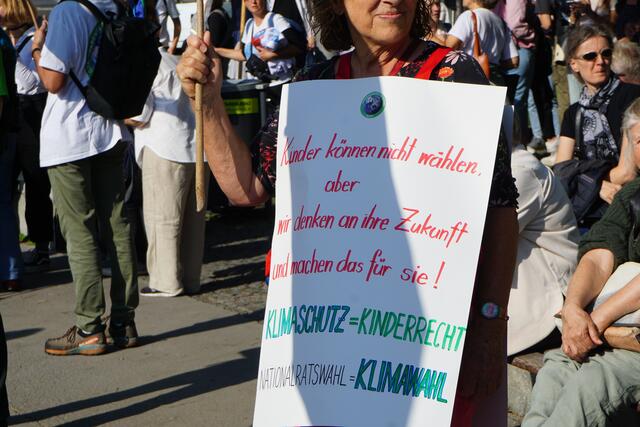 Kinder können nicht wählen,
aber
wir denken an ihre Zukunft
und machen das für sie!
KLIMASCHUTZ = KINDERRECHT
NATIONALRATSWAHL = KLIMAWAHL